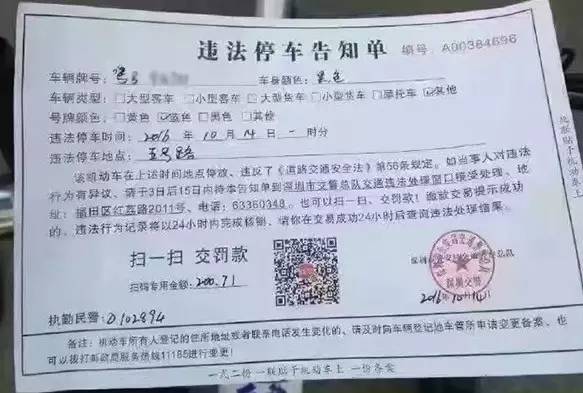 违法停车告知单 编号: A00384696
车辆牌号: 粤B 车身颜色: 黑色
车辆类型: □大型客车 □小型客车 □大型货车 □小型货车 □摩托车 ☑其他
号牌颜色: □黄色 ☑蓝色 □黑色 □其他
违法停车时间: 2016年 10月 14日 一 时分
违法停车地点:
该机动车在上述时间地点停放、违反了《道路交通安全法》第56条规定。如当事人对违法
行为有异议、请于3日后15日内持本告知单到深圳市交警总队交通违法处理窗口接受处理、地
址: 福田区红荔路2011号、电话: 63360348、也可以扫一扫、交罚款! 缴款交易提示成功
的、违法行为记录将以24小时内完成核销、请你在交易成功24小时后查询违法处理结果。
扫一扫 交罚款
扫码专用金额: 200.71
深圳交警
2016.10.14
执勤民警: 0102894
备注: 机动车所有人登记的住所地址或者联系电话发生变化的、请及时向车辆登记地车管所申请变更备案、也
可以拨打邮政局服务热线11185进行变更!
一式二份 一联贴于机动车上 一份备案
此联贴于机动车上